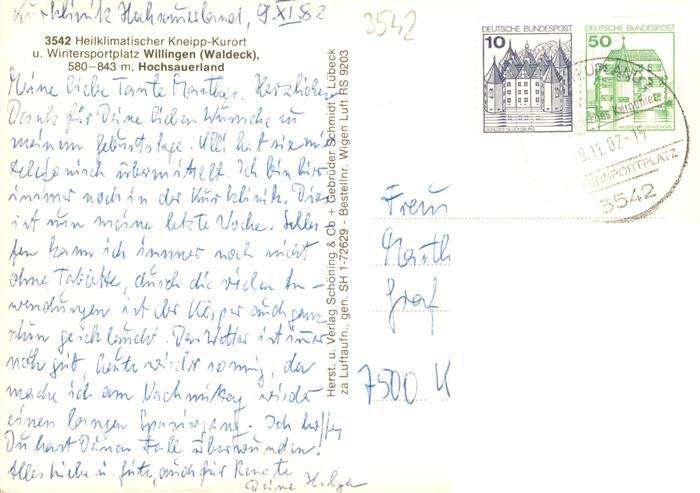 Kurklinik Hochsauerland, 9.XI.82
3542 Heilklimatischer Kneipp-Kurort
u. Wintersportplatz Willingen (Waldeck),
580–843 m, Hochsauerland
Meine liebe Tante Martha, Herzlichen
Dank für Deine lieben Wünsche zu
meinem Geburtstage. Ulli hat sie mir
telefonisch übermittelt. Ich bin hier
immer noch in der Kurklinik. Dies
ist nun meine letzte Woche. Schla-
fen kann ich immer noch nicht
ohne Tablette, durch die vielen An-
wendungen ist der Körper auch ganz
schön geschlaucht. Das Wetter ist immer
noch gut, heute wieder sonnig, da
mache ich am Nachmittag wieder
einen langen Spaziergang. Ich hoffe,
Du hast Deinen Fall überwunden.
Alles Liebe u. Gute, auch für Renate
Deine Helga
Herst. u. Verlag Schöning & Co + Gebrüder Schmidt, Lübeck
za Luftaufn., gen. SH 1-72629 - Bestellnr. Wigen Luft RS 9203
3542
DEUTSCHE BUNDESPOST
10
SCHLOSS GLÜCKSBURG
DEUTSCHE BUNDESPOST
50
9.11.82-1
3542
Frau
Marth
Graf
7500 K